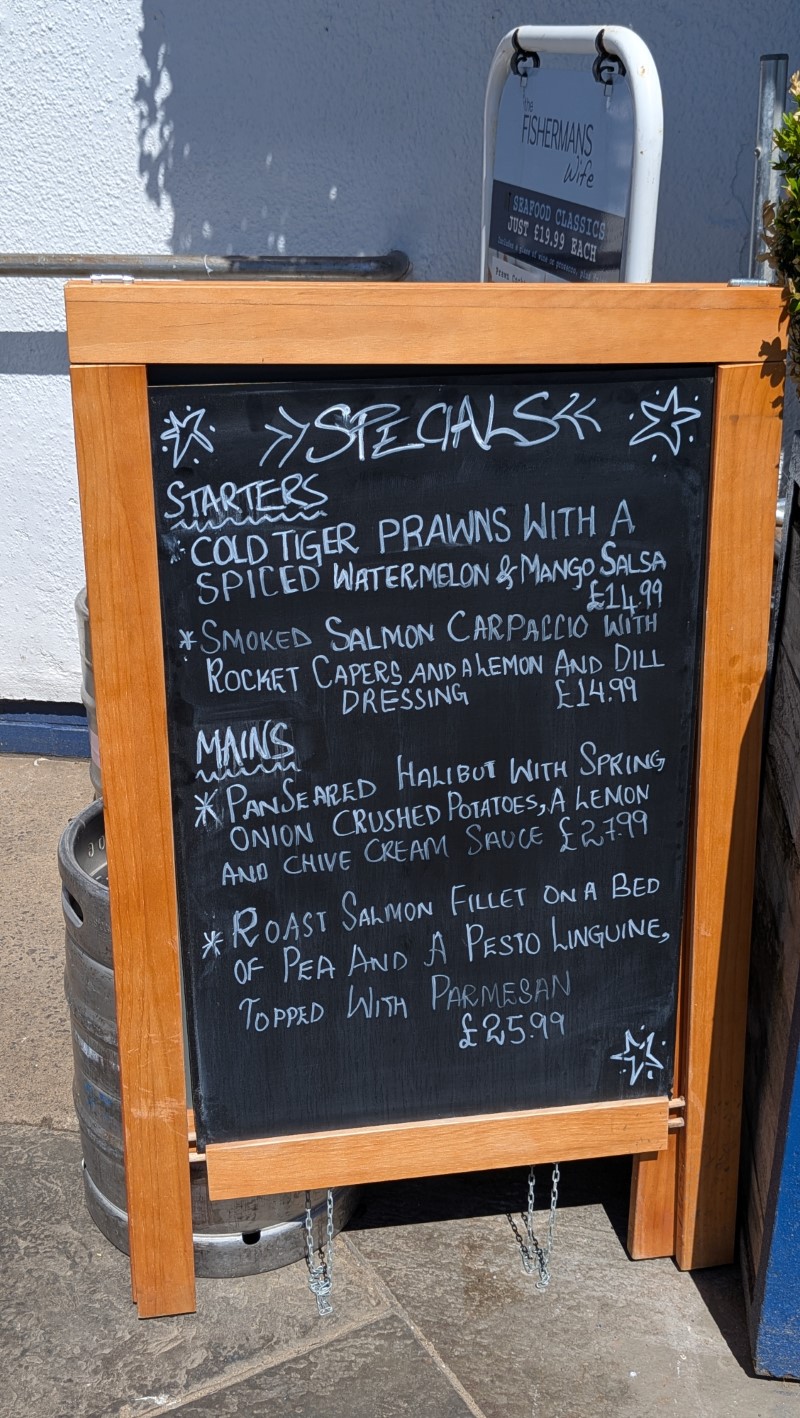 the
FISHERMANS
Wife
SEAFOOD CLASSICS
JUST £19.99 EACH
Includes a glass of wine or prosecco, plus
Prawn
SPECIALS
STARTERS
* COLD TIGER PRAWNS WITH A
SPICED WATERMELON & MANGO SALSA
£14.99
* SMOKED SALMON CARPACCIO WITH
ROCKET CAPERS AND A LEMON AND DILL
DRESSING £14.99
MAINS
* PAN SEARED HALIBUT WITH SPRING
ONION CRUSHED POTATOES, A LEMON
AND CHIVE CREAM SAUCE £27.99
* ROAST SALMON FILLET ON A BED
OF PEA AND A PESTO LINGUINE,
TOPPED WITH PARMESAN
£25.99